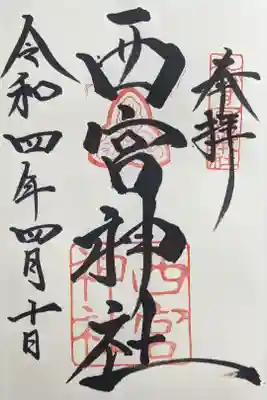 奉拝
西宮神社
西宮
神社
令和四年四月十日